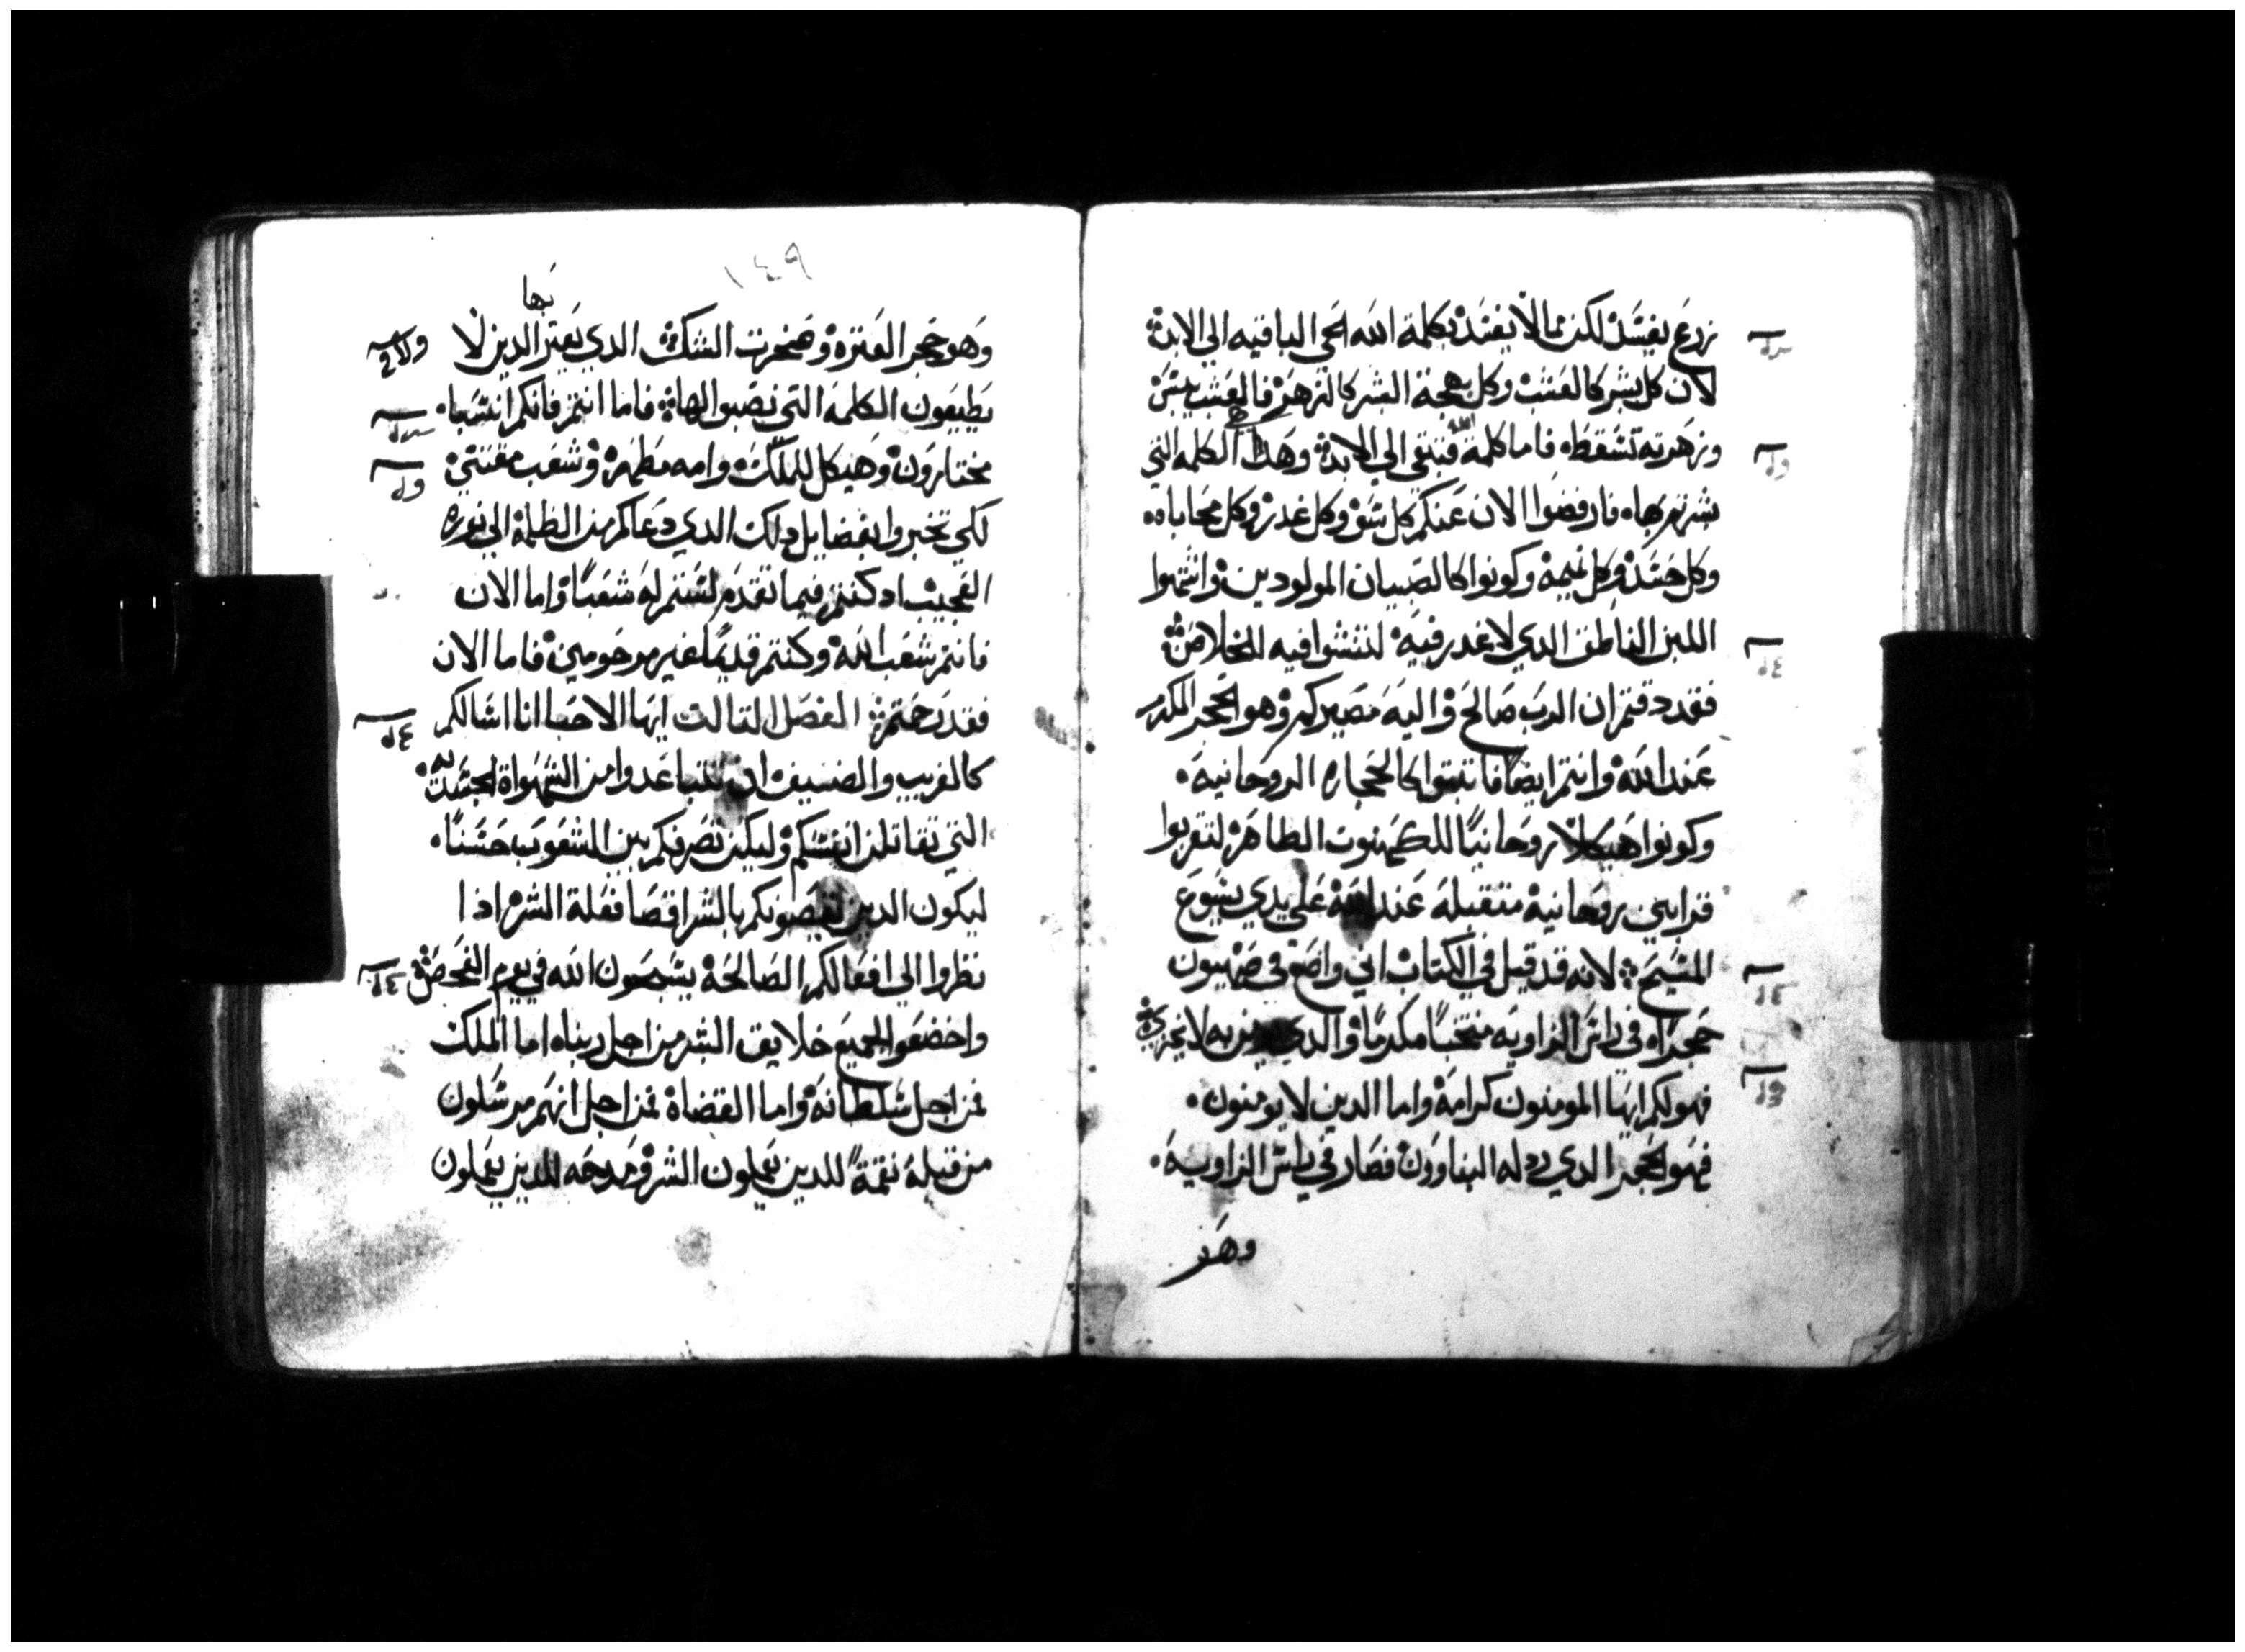 زرع يفسد لكن مما لا يفسد بكلمة الله الحي الباقيه الي الابد
لان كل بشر كالعشب وكل بهجة البشر كالزهر فالعشب يبس
وزهرته تسقط فاما كلمة الله فتبقي الي الابد وهذا هي الكلمه التي
بشرتم بها فارفضوا الان عنكم كل سو وكل غدر وكل محاباه
وكل حسد وكل نميمة وكونوا كالصبيان المولودين واشتهوا
اللبن الناطق الدي لا غدر فيه لتنشوا فيه للخلاص
فقد دقتم ان الرب صالح واليه مصيركم وهو الحجر المكرم
عند الله وانتم ايضا فابتنوا كالحجاره الروحانيه
وكونوا هيكلا روحانيا للكهنوت الطاهر لتقربوا
قرابين روحانية متقبلة عند الله علي يدي يسوع
المسيح لانه قد قيل في الكتاب اني واضع في صهيون
حجرا في راس الزاويه منتخبا مكرما والدي يومن به لا يخزي
فهو لكم ايها المومنون كرامة واما الدين لا يومنون
فهو الحجر الدي ردله البناوون فصار في راس الزاويه
وهو
١٤٩
بها
وهو حجر العثرة وصخرت الشك الدي يعثر الدين لا
يطيعون الكلمه التي نصبوا لها فاما انتم فانكم انسبا
مختارون وهيكل للملك وامه مطهرة وشعب مقتني
لكي تخبروا بفضايل دلك الدي دعاكم من الظلمة الي نوره
العجيب اد كنتم فيما تقدم لستم له شعبا واما الان
فانتم شعب الله وكنتم قديما غير مرحومين فاما الان
فقد رحمتم الفصل التالت ايها الاحبا انا اسالكم
كالغريب والضيف ان تتباعدوا من الشهواة الجسديه
التي تقاتلن انفسكم وليكن تصرفكم بين الشعوب حسنا
ليكون الدين يقصونكم بالشر اقصا فعلة الشر ادا
نظروا الي افعالكم الصالحة يسبحون الله في يوم الفحص
واخضعوا لجميع خلايق البشر من اجل ربنا اما الملك
فمن اجل سلطانه واما القضاة فمن اجل انهم مرسلون
من قبله نقمة للدين يعملون الشر ومدحه للدين يعملون